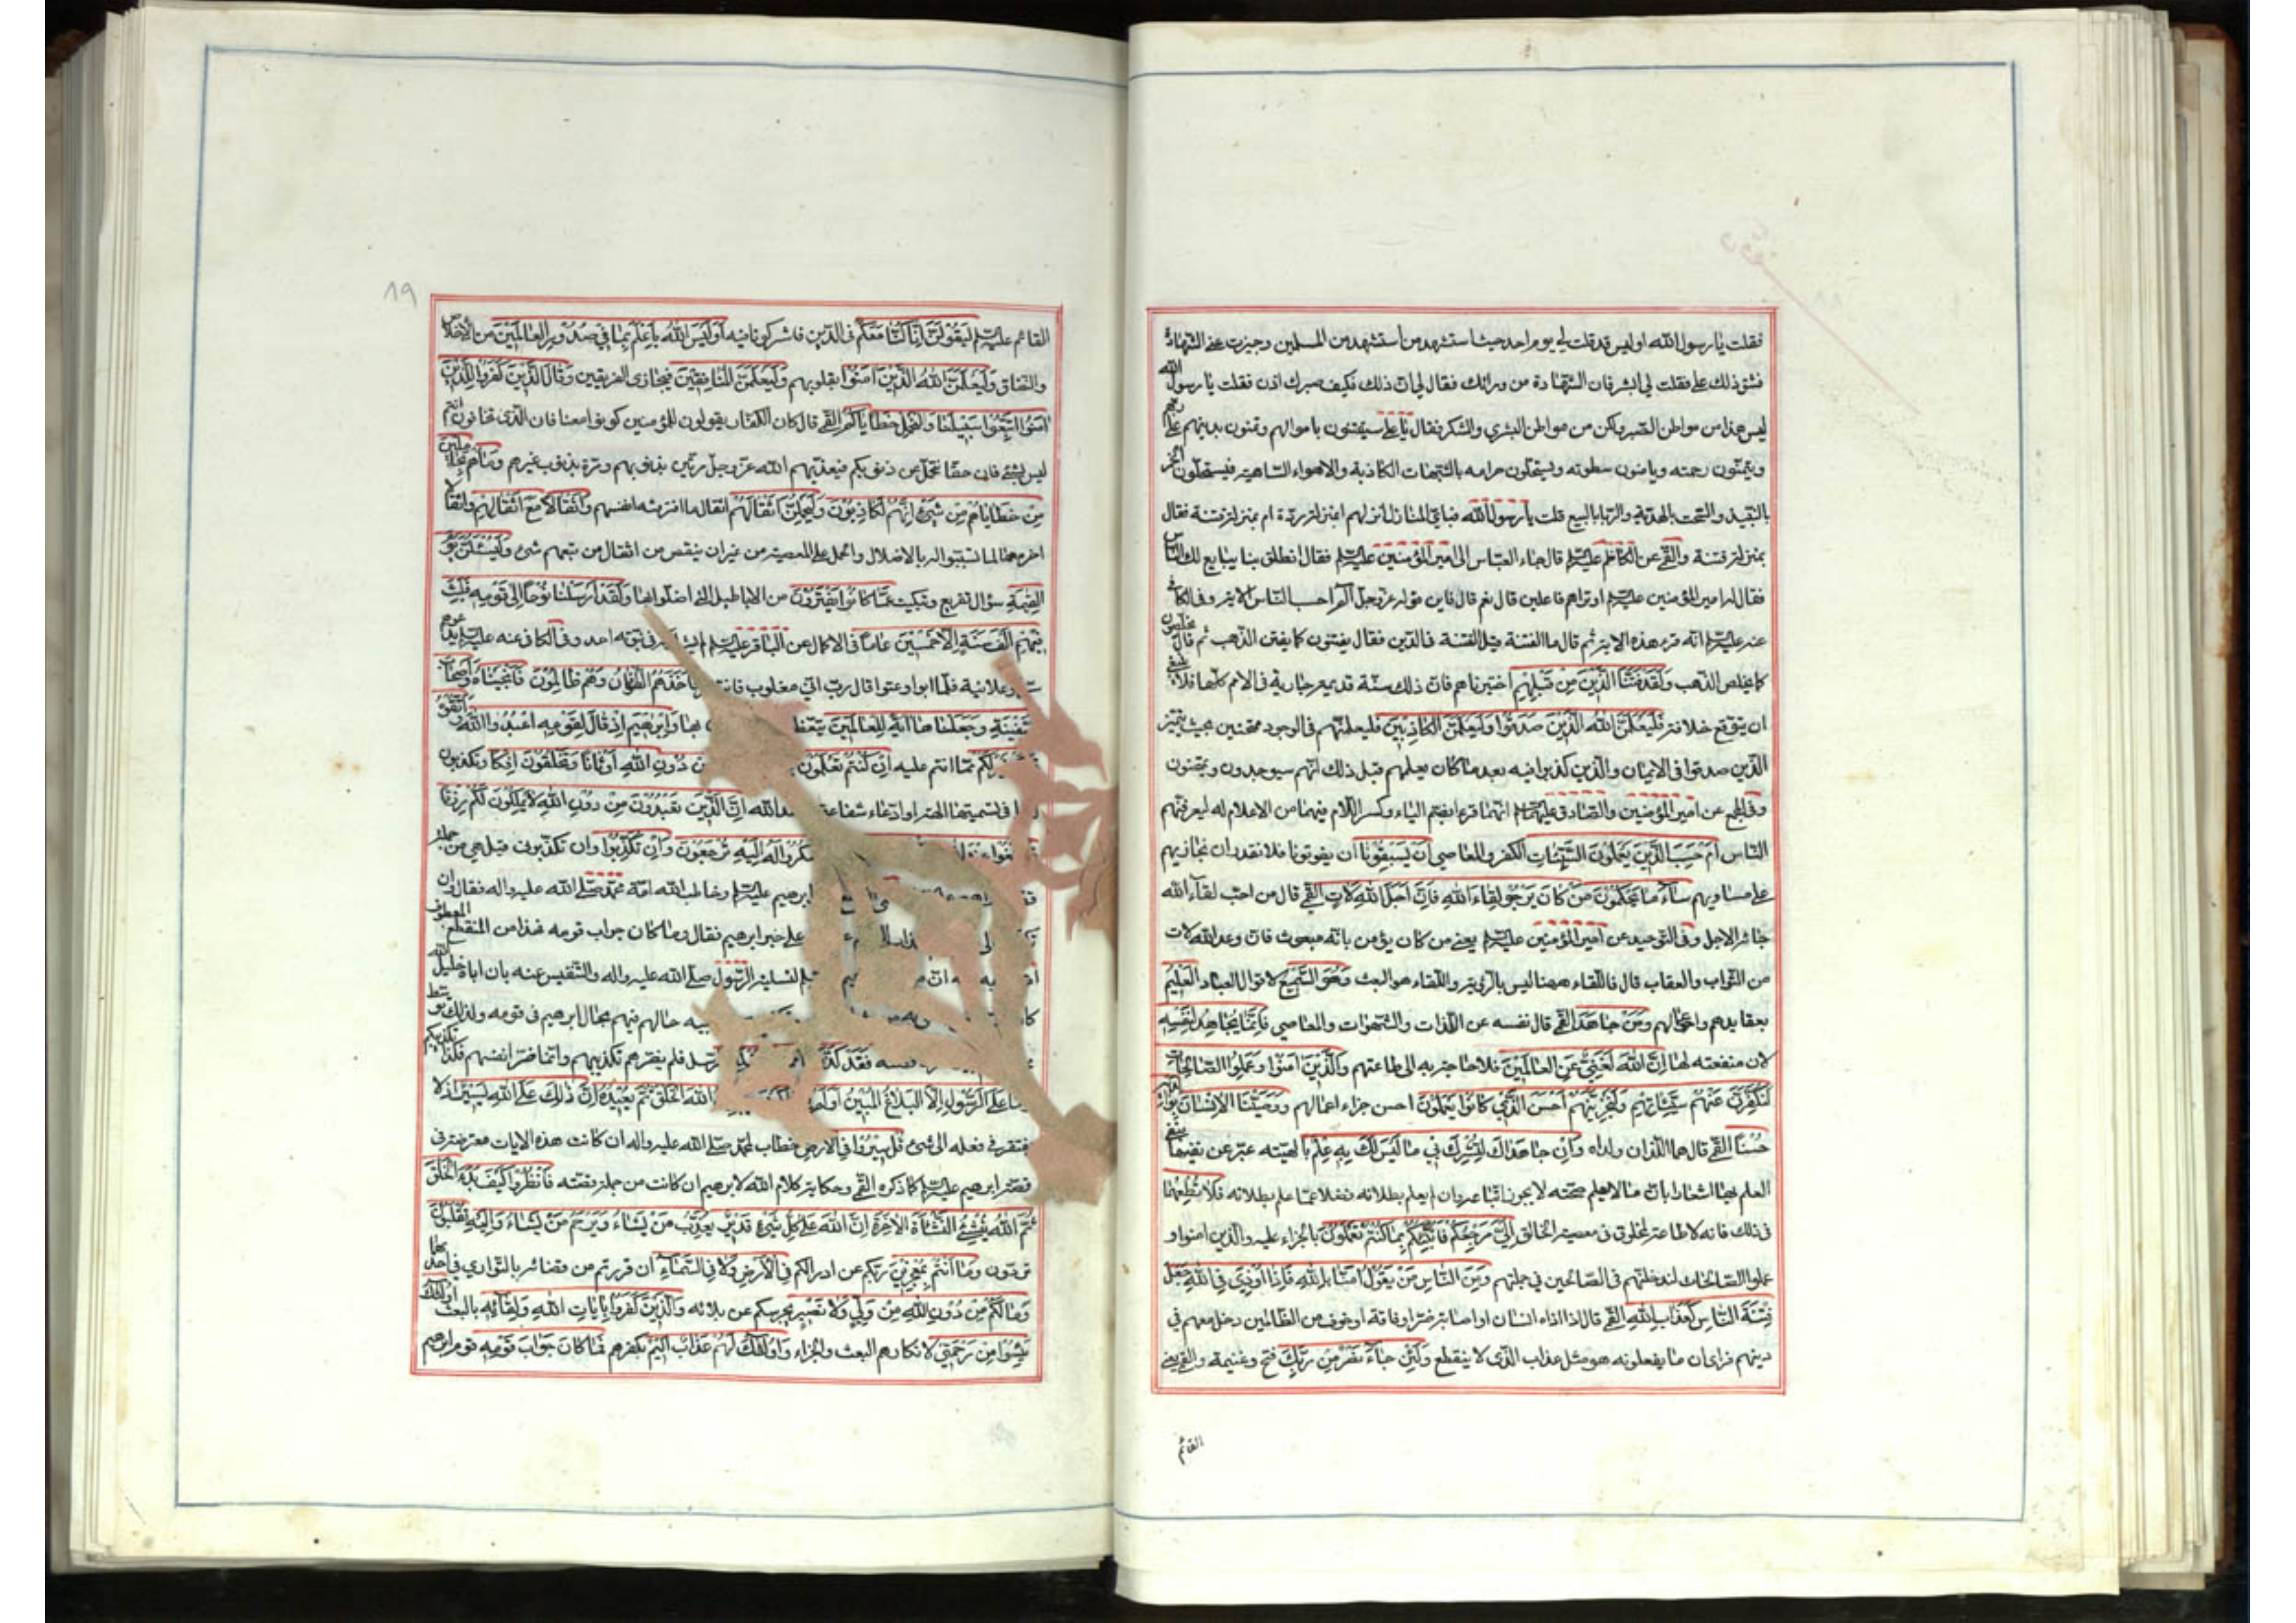 فقلت يا رسول الله اوليس قد قلت لي يوم احد حيث استشهد من استشهد من المسلمين وحيزت عني الشهادة
فشق ذلك علي فقلت لي ابشر فان الشهادة من ورائك فقال لي ان ذلك فكيف صبرك اذن فقلت يا رسول الله
ليس هذا من مواطن الصبر ولكن من مواطن البشرى والشكر فقال يا علي سيفتنون باموالهم ويمنون بدينهم على ربهم
ويتمنون رحمته ويامنون سطوته ويستحلون حرامه بالشبهات الكاذبة والاهواء الساهية فيستحلون الخمر
بالنبيذ والسحت بالهدية والربا بالبيع قلت يا رسول الله فباي المنازل انزلهم ابمنزلة ردة ام بمنزلة فتنة فقال
بمنزلة فتنة والقمي عن الكاظم عليه السلم قال جاء العباس الى امير المؤمنين عليه السلم فقال انطلق بنا يبايع لك الناس
فقال له امير المؤمنين عليه السلم اوتراهم فاعلين قال نعم قال فاين قوله عز وجل الم احسب الناس الاية وفي الكافي
عنه عليه السلم انه قرء هذه الاية ثم قال ما الفتنة قيل الفتنة في الدين فقال يفتنون كما يفتن الذهب ثم قال يخلصون
كما يخلص الذهب وَلَقَدْ فَتَنَّا الَّذِينَ مِنْ قَبْلِهِمْ اختبرناهم فان ذلك سنة قديمة جارية في الامم كلها فلا ينبغي
ان يتوقع خلافه فَلَيَعْلَمَنَّ اللهُ الَّذِينَ صَدَقُوا وَلَيَعْلَمَنَّ الْكَاذِبِينَ فليعلمنهم في الوجود ممتحنين بحيث يتميز
الذين صدقوا في الايمان والذين كذبوا فيه بعد ما كان يعلمهم قبل ذلك انهم سيوجدون ويمتحنون
وفي المجمع عن امير المؤمنين والصادق عليهما السلم انهما قرءا بضم الياء وكسر اللام فيهما من الاعلام له ليعرفنهم
الناس اَمْ حَسِبَ الَّذِينَ يَعْمَلُونَ السَّيِّئَاتِ الكفر والمعاصي اَنْ يَسْبِقُونَا ان يفوتونا فلا نقدر ان نجازيهم
على مساويهم سَاءَ مَا يَحْكُمُونَ مَنْ كَانَ يَرْجُو لِقَاءَ اللهِ فَاِنَّ اَجَلَ اللهِ لَاتٍ القمي قال من احب لقاء الله
جائه الاجل وفي التوحيد عن امير المؤمنين عليه السلم يعني من كان يؤمن بانه مبعوث فان وعد الله لات
من الثواب والعقاب قال فاللقاء ههنا ليس بالرؤية واللقاء هو البعث وَهُوَ السَّمِيعُ لاقوال العباد الْعَلِيمُ
بعقايدهم واعمالهم وَمَنْ جَاهَدَ القمي قال نفسه عن اللذات والشهوات والمعاصي فَاِنَّمَا يُجَاهِدُ لِنَفْسِهِ
لان منفعته لها اِنَّ اللهَ لَغَنِيٌّ عَنِ الْعَالَمِينَ فلا حاجة به الى طاعتهم وَالَّذِينَ آمَنُوا وَعَمِلُوا الصَّالِحَاتِ
لَنُكَفِّرَنَّ عَنْهُمْ سَيِّئَاتِهِمْ وَلَنَجْزِيَنَّهُمْ اَحْسَنَ الَّذِي كَانُوا يَعْمَلُونَ احسن جزاء اعمالهم وَوَصَّيْنَا الْاِنْسَانَ بِوَالِدَيْهِ
حُسْنًا القمي قال هما اللذان ولداه وَاِنْ جَاهَدَاكَ لِتُشْرِكَ بِي مَا لَيْسَ لَكَ بِهِ عِلْمٌ بالهيته عبر عن نفيها بنفي
العلم بها اشعارا بان ما لا يعلم صحته لا يجوز اتباعه وان لم يعلم بطلانه فضلا عما علم بطلانه فَلَا تُطِعْهُمَا
في ذلك فانه لا طاعة لمخلوق في معصية الخالق اِلَيَّ مَرْجِعُكُمْ فَاُنَبِّئُكُمْ بِمَا كُنْتُمْ تَعْمَلُونَ بالجزاء عليه والذين امنوا و
عملوا الصالحات لندخلنهم في الصالحين في جملتهم وَمِنَ النَّاسِ مَنْ يَقُولُ آمَنَّا بِاللهِ فَاِذَا اُوذِيَ فِي اللهِ جَعَلَ
فِتْنَةَ النَّاسِ كَعَذَابِ اللهِ القمي قال اذا اذاه انسان او اصابه ضر او فاقة او خوف من الظالمين دخل معهم في
دينهم فراى ان ما يفعلونه هو مثل عذاب الله الذي لا ينقطع وَلَئِنْ جَاءَ نَصْرٌ مِنْ رَبِّكَ فتح وغنيمة والقمي يعني
القائم
19
القائم عليه السلم لَيَقُولُنَّ اِنَّا كُنَّا مَعَكُمْ في الدين فاشركونا فيه اَوَلَيْسَ اللهُ بِاَعْلَمَ بِمَا فِي صُدُورِ الْعَالَمِينَ من الاخلاص
والنفاق وَلَيَعْلَمَنَّ اللهُ الَّذِينَ آمَنُوا بقلوبهم وَلَيَعْلَمَنَّ الْمُنَافِقِينَ فيجازى الفريقين وَقَالَ الَّذِينَ كَفَرُوا لِلَّذِينَ
آمَنُوا اتَّبِعُوا سَبِيلَنَا وَلْنَحْمِلْ خَطَايَاكُمْ القمي قال كان الكفار يقولون للمؤمنين كونوا معنا فان الذي تخافون انتم
ليس بشئ فان كان حقا نتحمل عن ذنوبكم فيعذبهم الله عز وجل مرتين بذنوبهم ومرة بذنوب غيرهم وَمَا هُمْ بِحَامِلِينَ
مِنْ خَطَايَاهُمْ مِنْ شَيْءٍ اِنَّهُمْ لَكَاذِبُونَ وَلَيَحْمِلُنَّ اَثْقَالَهُمْ اثقال ما اقترفته انفسهم وَاَثْقَالًا مَعَ اَثْقَالِهِمْ واثقالا
اخر معها لما تسببوا له بالاضلال والحمل على المعصية من غير ان ينقص من اثقال من تبعهم شئ وَلَيُسْئَلُنَّ يَوْمَ
الْقِيٰمَةِ سؤال تقريع وتبكيت عَمَّا كَانُوا يَفْتَرُونَ من الاباطيل التي اضلوا بها وَلَقَدْ اَرْسَلْنَا نُوحًا اِلَى قَوْمِهِ فَلَبِثَ
فِيهِمْ اَلْفَ سَنَةٍ اِلَّا خَمْسِينَ عَامًا في الاكمال عن الباقر عليه السلم في نبوته احد وفي الكافي عنه عليه السلم يدعوهم
سرا وعلانية فلما ابوا وعتوا قال رب اني مغلوب فانتصر فَاَخَذَهُمُ الطُّوفَانُ وَهُمْ ظَالِمُونَ فَاَنْجَيْنَاهُ وَاَصْحَابَ
السَّفِينَةِ وَجَعَلْنَاهَا آيَةً لِلْعَالَمِينَ يتعظون بها وَاِبْرٰهِيمَ اِذْ قَالَ لِقَوْمِهِ اعْبُدُوا اللهَ وَاتَّقُوهُ
خَيْرٌ لَكُمْ مما انتم عليه اِنْ كُنْتُمْ تَعْلَمُونَ مِنْ دُونِ اللهِ اَوْثَانًا وَتَخْلُقُونَ اِفْكًا وتكذبون
في تسميتها الهة او ادعاء شفاعتها عند الله اِنَّ الَّذِينَ تَعْبُدُونَ مِنْ دُونِ اللهِ لَا يَمْلِكُونَ لَكُمْ رِزْقًا
وَاشْكُرُوا لَهُ اِلَيْهِ تُرْجَعُونَ وَاِنْ تُكَذِّبُوا وان تكذبون قيل هي من جملة
ابرهيم عليه السلم وخاطب الله امة محمد صلى الله عليه واله فقال وان
على خبر ابرهيم فقال وما كان جواب قومه فهذا من المنقطع المعطوف
لتسلية الرسول صلى الله عليه واله والتنفيس عنه بان اباه خليل الله
حالهم فيهم بحال ابرهيم في قومه ولذلك
نفسه فَقَدْ كَذَّبَ الرسل فلم يضرهم تكذيبهم وانما ضر انفسهم فكذا تكذيبكم
وَمَا عَلَى الرَّسُولِ اِلَّا الْبَلَاغُ الْمُبِينُ اَوَلَمْ اللهُ الْخَلْقَ ثُمَّ يُعِيدُهُ اِنَّ ذٰلِكَ عَلَى اللهِ يَسِيرٌ اذ لا
يفتقر في فعله الى شئ قُلْ سِيرُوا فِي الْاَرْضِ خطاب لمحمد صلى الله عليه واله ان كانت هذه الايات معترضة في
قصة ابرهيم عليه السلم كما ذكره القمي وحكاية كلام الله لابرهيم ان كانت من جملة قصته فَانْظُرُوا كَيْفَ بَدَءَ الْخَلْقَ
ثُمَّ اللهُ يُنْشِئُ النَّشْاَةَ الْآخِرَةَ اِنَّ اللهَ عَلَى كُلِّ شَيْءٍ قَدِيرٌ يُعَذِّبُ مَنْ يَشَاءُ وَيَرْحَمُ مَنْ يَشَاءُ وَاِلَيْهِ تُقْلَبُونَ
تردون وَمَا اَنْتُمْ بِمُعْجِزِينَ ربكم عن ادراككم فِي الْاَرْضِ وَلَا فِي السَّمَاءِ ان فررتم من قضائه بالتواري في احدهما
وَمَا لَكُمْ مِنْ دُونِ اللهِ مِنْ وَلِيٍّ وَلَا نَصِيرٍ يحرسكم عن بلائه وَالَّذِينَ كَفَرُوا بِآيَاتِ اللهِ وَلِقَائِهِ بالبعث اُولٰئِكَ
يَئِسُوا مِنْ رَحْمَتِي لانكارهم البعث والجزاء وَاُولٰئِكَ لَهُمْ عَذَابٌ اَلِيمٌ بكفرهم فَمَا كَانَ جَوَابَ قَوْمِهِ قوم ابرهيم